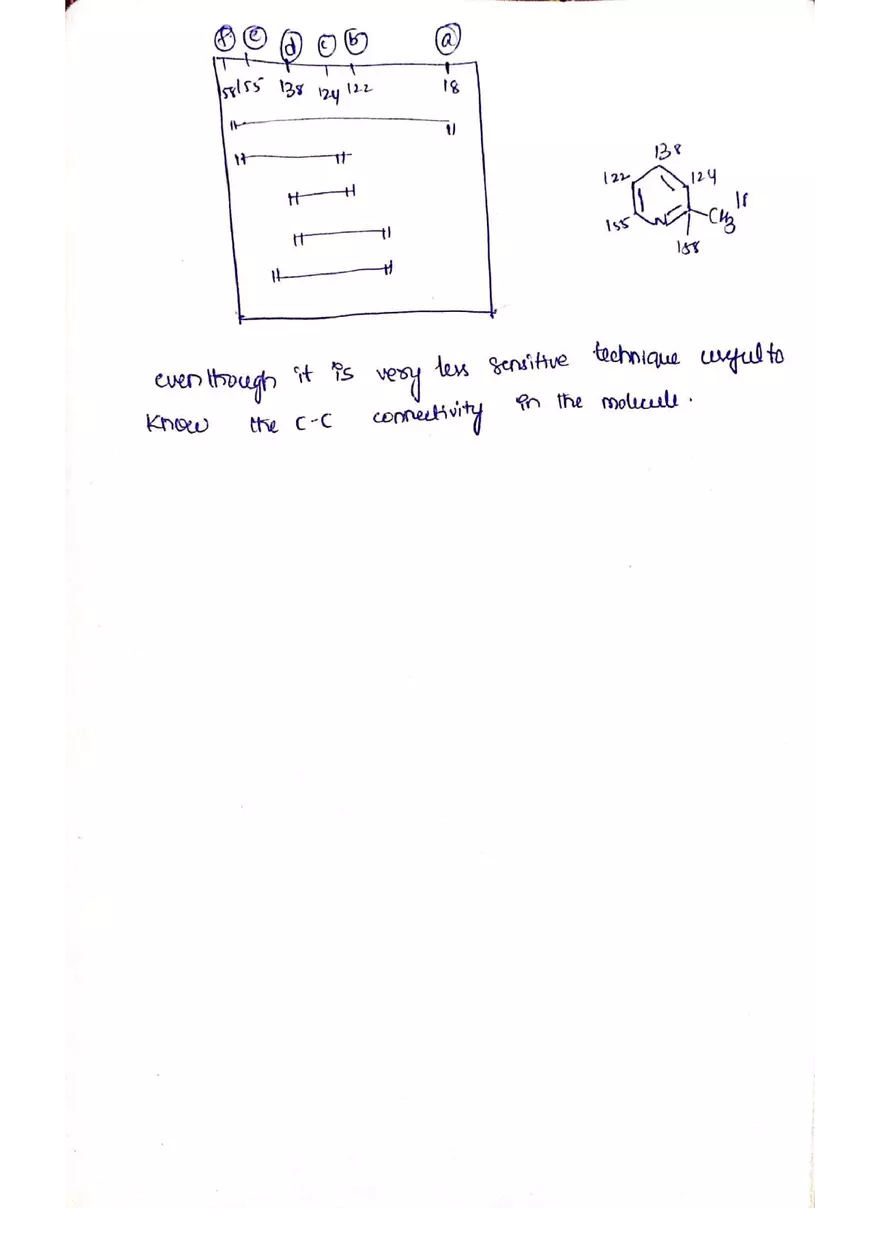 f e d c b a
158 155 138 124 122 18
138
122 124
18
CH3
155 N
158
even though it is very less sensitive technique useful to
know the C-C connectivity in the molecule.